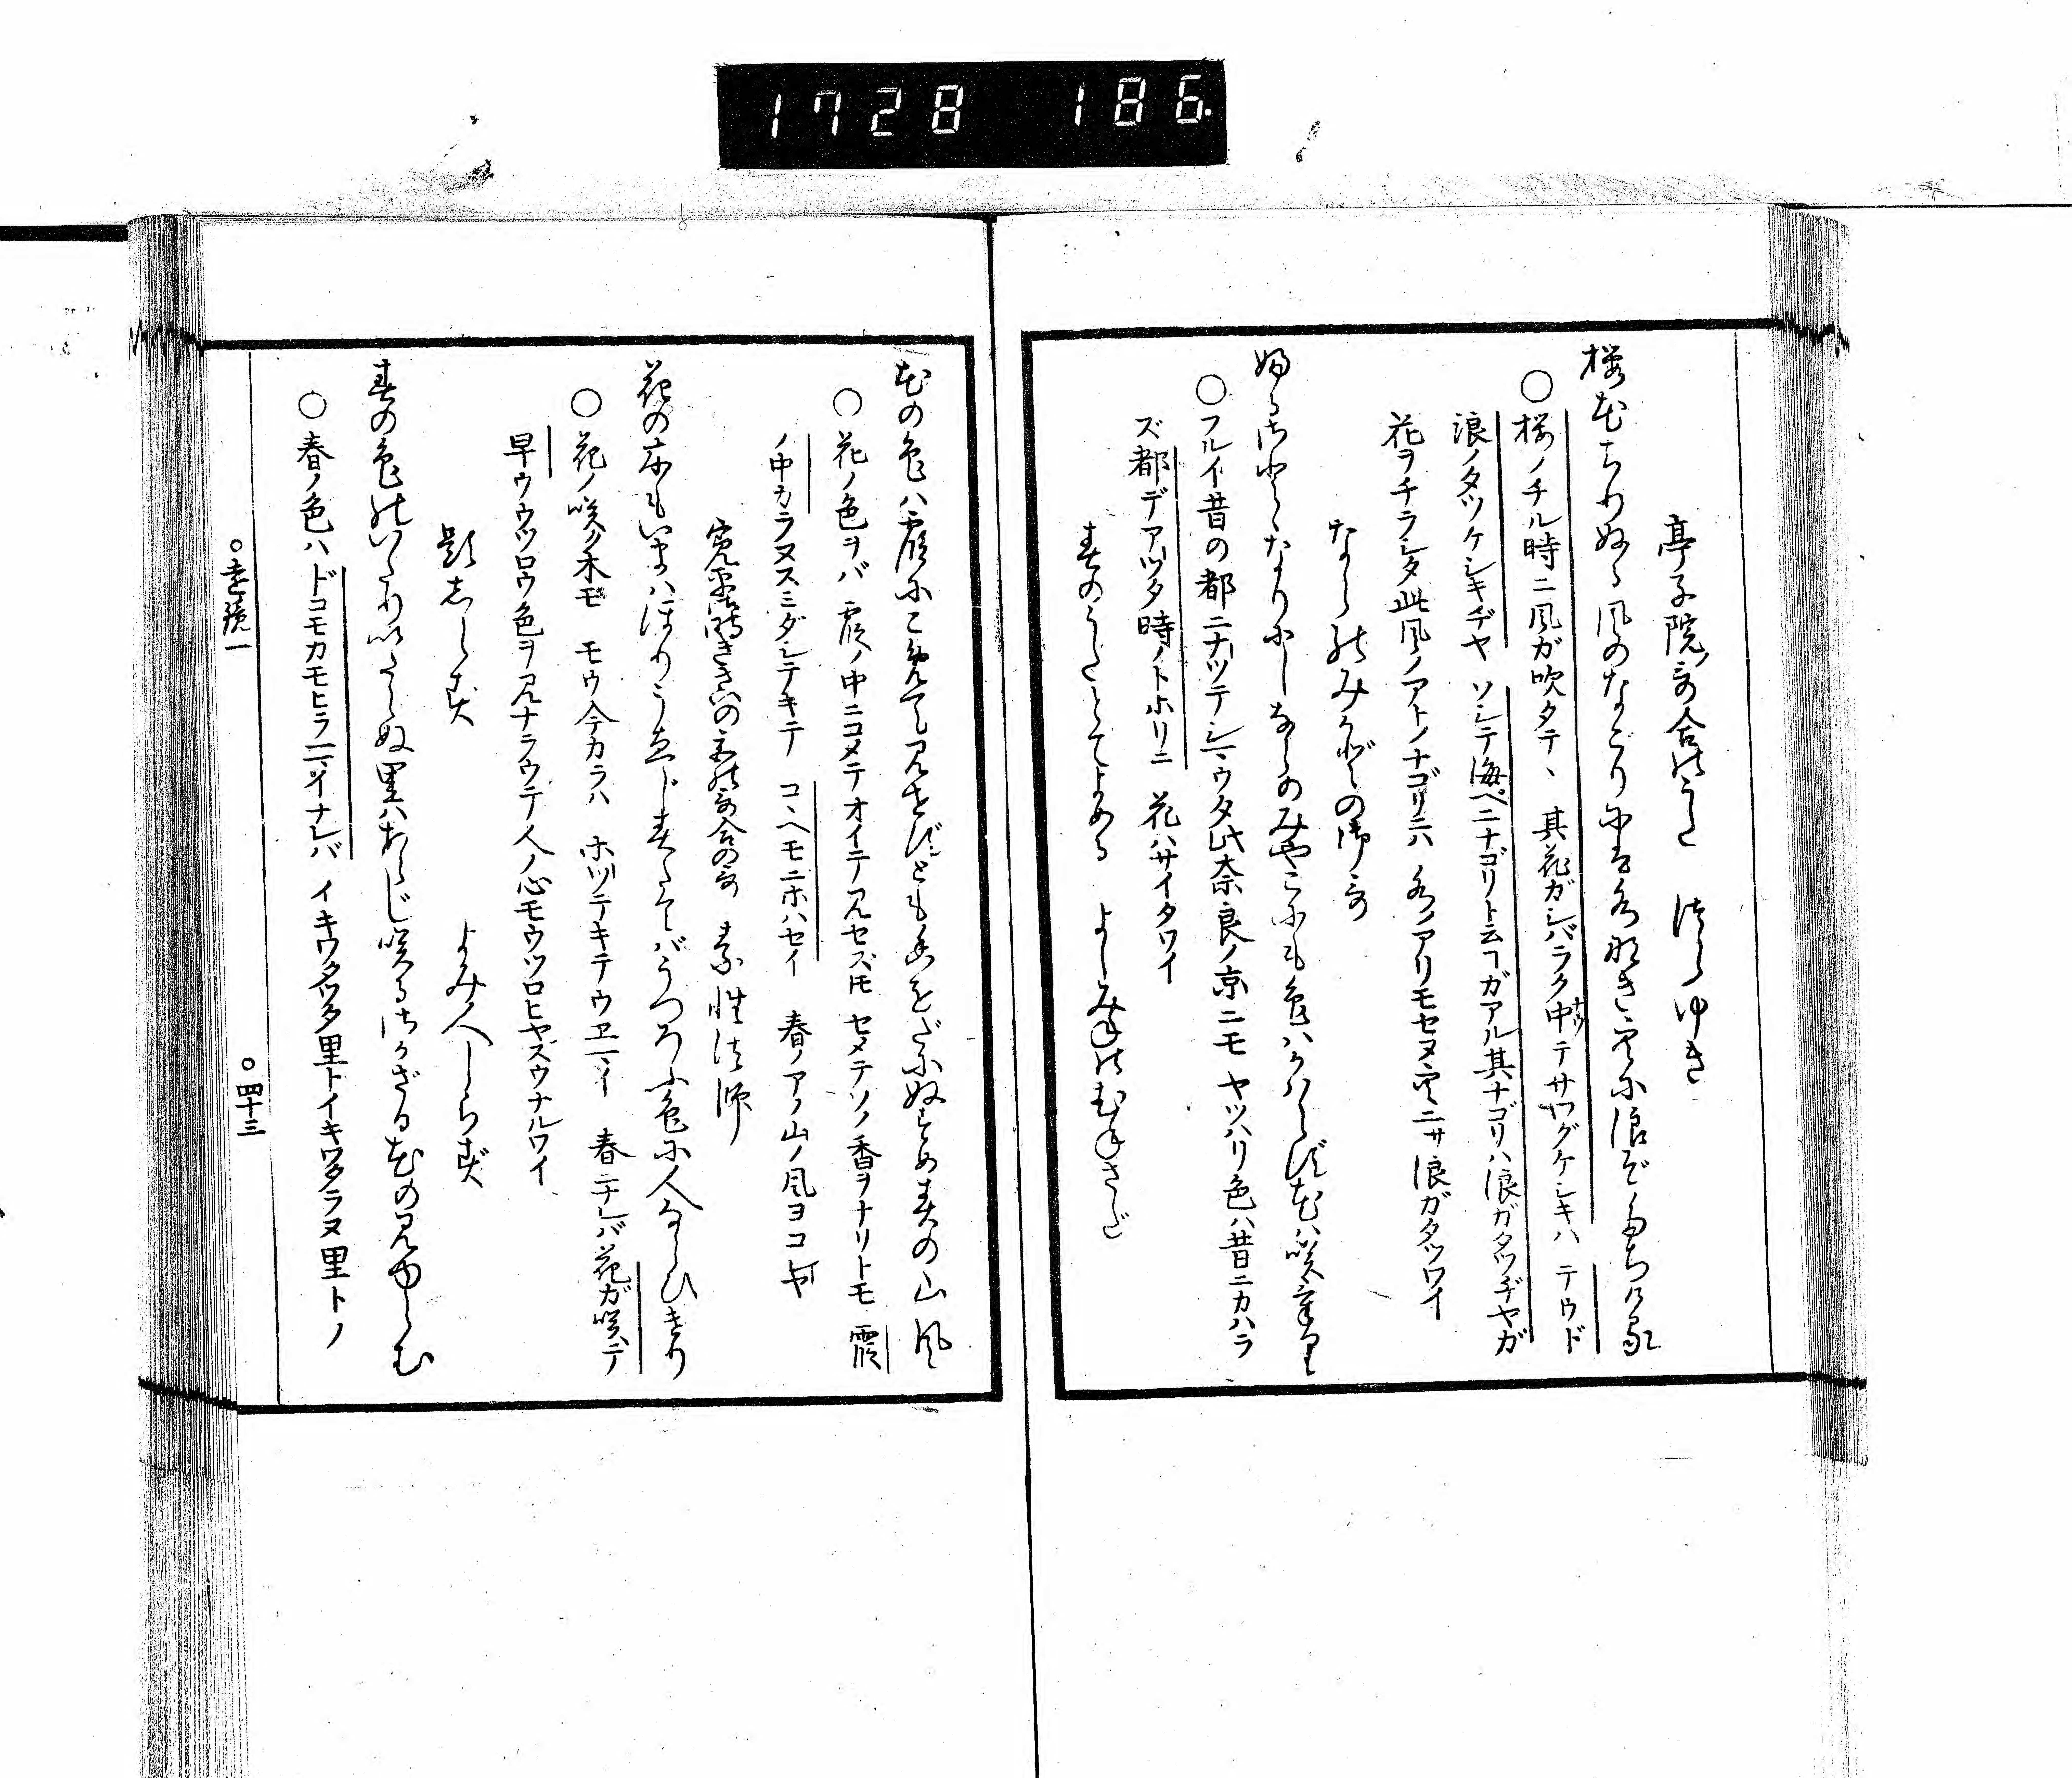 1728 186.
亭子院哥合のうた　つらゆき
桜花ちりぬる風のなごりには水なき空に浪ぞたちける
○桜ノチル時ニ風ガ吹タテヽ　其花ガシバラク中デサワグケシキハ　テウド
浪ノタツケシキヂヤ　ソシテ海ベニナゴリト云ヿガアル其ナゴリハ浪ガタツヂヤガ
花ヲチラシタ此風ノアトノナゴリニハ　水ノアリモセヌ空ニサ浪ガタツワイ
ならのみかどの御哥
ふるさとゝなりにしならのみやこにも色はかはらず花は咲けり
○フルイ昔の都ニナツテシマウタ此奈良ノ京ニモ　ヤツハリ色ハ昔ニカハラ
ズ都デアツタ時ノトホリニ　花ハサイタワイ
春のうたとてよめる　よしみねのむねさだ
花の色は霞にこめて見せずとも香をだにぬすめ春の山風
○花ノ色ヲバ　霞ノ中ニコメテオイテ見セズトモ　セメテソノ香ヲナリトモ　霞
ノ中カラヌスミダシテキテ　コヽヘモニホハセイ　春ノアノ山ノ風ヨコレヤ
寛平御時きさいの宮の哥合の哥　素性法師
花の木もいまはほりうゑじ春たてばうつろふ色に人ならひけり
○花ノ咲ク木モ　モウ今カラハ　ホツテキテウヱマイ　春ニナレバ花ガ咲テ
早ウウツロウ色ヲ見ナラウテ人ノ心モウツロヒヤスウナルワイ
題しらず　よみ人しらず
春の色のいたりいたらぬ里はあらじ咲るさかざる花の見ゆらむ
○春ノ色ハドコモカモヒラニイナレバ　イキワタツタ里トイキワタラヌ里トノ
○遠鏡一　○四十三